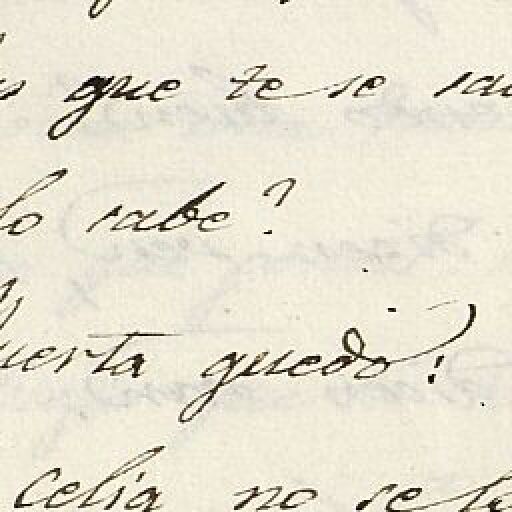 que te se
lo sabe?
uerta quedo!
Celia no se